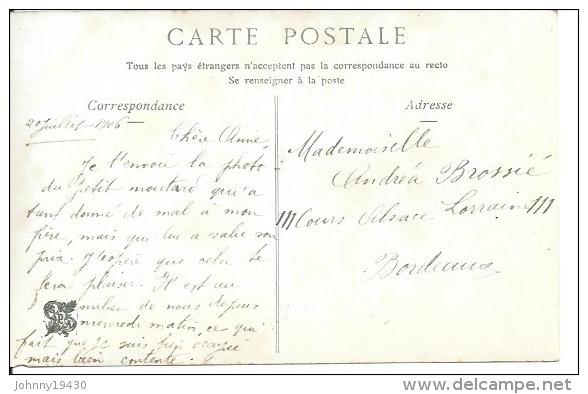 CARTE POSTALE
Tous les pays étrangers n'acceptent pas la correspondance au recto
Se renseigner à la poste
Correspondance
20 Juillet - 1906
Chère Anné
Je t'envoie la photo
du petit moutard qu'a
tant donné de mal à mon
père, mais qui lui a valu son
prix. J'espère que cela te
fera plaisir. Il est au
milieu de nous depuis
mercredi matin, ce qui
fait que je suis bien occupé
mais bien contente.
Adresse
Mademoiselle
Andréa Brossié
111 Cours Alsace Lorraine 111
Bordeaux
Johnny19430
www.delcampe.net